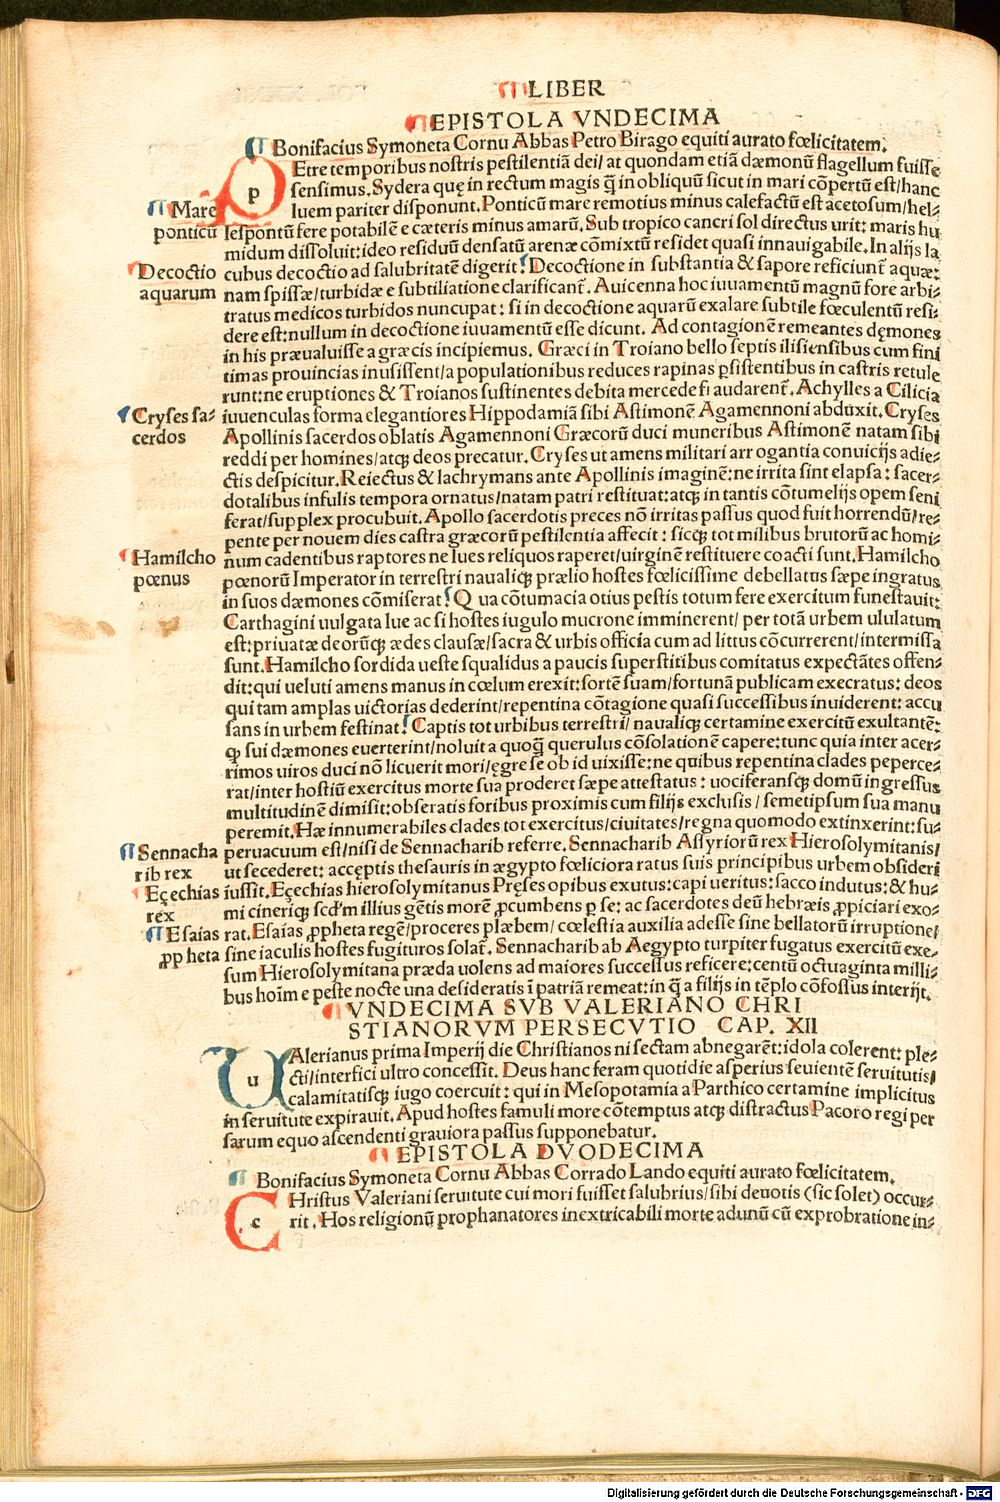 LIBER
EPISTOLA VNDECIMA
Bonifacius Symoneta Cornu Abbas Petro Birago equiti aurato fœlicitatem.
PEtre temporibus nostris pestilentiã dei/ at quondam etiã dæmonũ flagellum fuisse
sensimus. Sydera quę in rectum magis q̃ in obliquũ sicut in mari cõpertũ est/hanc
Mare luem pariter disponunt. Ponticũ mare remotius minus calefactũ est acetosum/hel⸗
ponticũ lespontũ fere potabilẽ e cæteris minus amarũ. Sub tropico cancri sol directus urit: maris hu
midum dissoluit: ideo residuũ densatũ arenæ cõmixtũ residet quasi innauigabile. In alijs la
Decoctio cubus decoctio ad salubritatẽ digerit: Decoctione in substantia & sapore reficiunt̃ aquæ:
aquarum nam spissæ/turbidæ e subtiliatione clarificant̃. Auicenna hoc iuuamentũ magnũ fore arbi⸗
tratus medicos turbidos nuncupat: si in decoctione aquarũ exalare subtile fœculentũ resi⸗
dere est: nullum in decoctione iuuamentũ esse dicunt. Ad contagionẽ remeantes dęmones
in his præualuisse a græcis incipiemus. Græci in Troiano bello septis ilisiensibus cum fini
timas prouincias inusissent/a populationibus reduces rapinas ꝑsistentibus in castris retule
runt: ne eruptiones & Troianos sustinentes debita mercede fraudarent̃. Achylles a Cilicia
Cryses sa⸗ iuuenculas forma elegantiores Hippodamiã sibi Astimonẽ Agamennoni abduxit. Cryses
cerdos Apollinis sacerdos oblatis Agamennoni Græcorũ duci muneribus Astimonẽ natam sibi
reddi per homines/atqꝫ deos precatur. Cryses ut amens militari arrogantia conuicijs adie⸗
ctis despicitur. Reiectus & lachrymans ante Apollinis imaginẽ: ne irrita sint elapsa: sacer⸗
dotalibus infulis tempora ornatus/natam patri restituat: atqꝫ in tantis cõtumelijs opem seni
ferat/supplex procubuit. Apollo sacerdotis preces nõ irritas passus quod fuit horrendũ/re⸗
pente per nouem dies castra græcorũ pestilentia affecit: sicqꝫ tot milibus brutorũ ac homi⸗
Hamilcho num cadentibus raptores ne lues reliquos raperet/uirginẽ restituere coacti sunt. Hamilcho
pœnus pœnorũ Imperator in terrestri naualiqꝫ prælio hostes fœlicissime debellatus sæpe ingratus
in suos dæmones cõmiserat: Qua cõtumacia otius pestis totum fere exercitum funestauit:
Carthagini uulgata lue ac si hostes iugulo mucrone imminerent/ per totã urbem ululatum
est: priuatæ deorũqꝫ ædes clausæ/sacra & urbis officia cum ad littus cõcurrerent/intermissa
sunt. Hamilcho sordida ueste squalidus a paucis superstitibus comitatus expectãtes offen⸗
dit: qui ueluti amens manus in cœlum erexit: sortẽ suam/fortunã publicam execratus: deos
qui tam amplas uictorias dederint/repentina cõtagione quasi successibus inuiderent: accu
sans in urbem festinat: Captis tot urbibus terrestri/ naualiqꝫ certamine exercitũ exultantẽ:
qꝫ sui dæmones euerterint/noluit a quoq̃ querulus cõsolationẽ capere: tunc quia inter acer⸗
rimos uiros duci nõ licuerit mori/ęgre se ob id uixisse: ne quibus repentina clades peperce⸗
rat/inter hostiũ exercitus morte sua proderet sæpe attestatus: uociferansqꝫ domũ ingressus
multitudinẽ dimisit: obseratis foribus proximis cum filijs exclusis / semetipsum sua manu
peremit. Hæ innumerabiles clades tot exercitus/ciuitates/regna quomodo extinxerint: su⸗
Sennacha peruacuum est/nisi de Sennacharib referre. Sennacharib Assyriorũ rex Hierosolymitanis/
rib rex ut secederet: accęptis thesauris in ægypto fœliciora ratus suis principibus urbem obsideri
Eçechias iussit. Eçechias hierosolymitanus Pręses opibus exutus: capi ueritus: sacco indutus: & hu⸗
rex mi cineriqꝫ scd'm illius gẽtis morẽ ꝓcumbens ꝑ se: ac sacerdotes deũ hebræis ꝓpiciari exo⸗
Esaias rat. Esaias ꝓpheta regẽ/proceres plæbem/ cœlestia auxilia adesse sine bellatorũ irruptione/
ꝓpheta sine iaculis hostes fugituros solat̃. Sennacharib ab Aegypto turpiter fugatus exercitũ exe⸗
sum Hierosolymitana præda uolens ad maiores successus reficere: centũ octuaginta milli⸗
bus hoĩm e peste nocte una desideratis ĩ patriã remeat: in q̃ a filijs in tẽplo cõfossus interijt.
VNDECIMA SVB VALERIANO CHRI
STIANORVM PERSECVTIO CAP. XII
UAlerianus prima Imperij die Christianos ni sectam abnegarẽt: idola colerent: ple⸗
cti/interfici ultro concessit. Deus hanc feram quotidie asperius seuientẽ seruitutis/
calamitatisqꝫ iugo coercuit: qui in Mesopotamia a Parthico certamine implicitus
in seruitute expirauit. Apud hostes famuli more cõtemptus atqꝫ distractus Pacoro regi per
sarum equo ascendenti grauiora passus supponebatur.
EPISTOLA DVODECIMA
Bonifacius Symoneta Cornu Abbas Corrado Lando equiti aurato fœlicitatem.
CHristus Valeriani seruitute cui mori fuisset salubrius/sibi deuotis (sic solet) occur⸗
rit. Hos religionũ prophanatores inextricabili morte adunũ cũ exprobratione in⸗
Digitalisierung gefördert durch die Deutsche Forschungsgemeinschaft - DFG